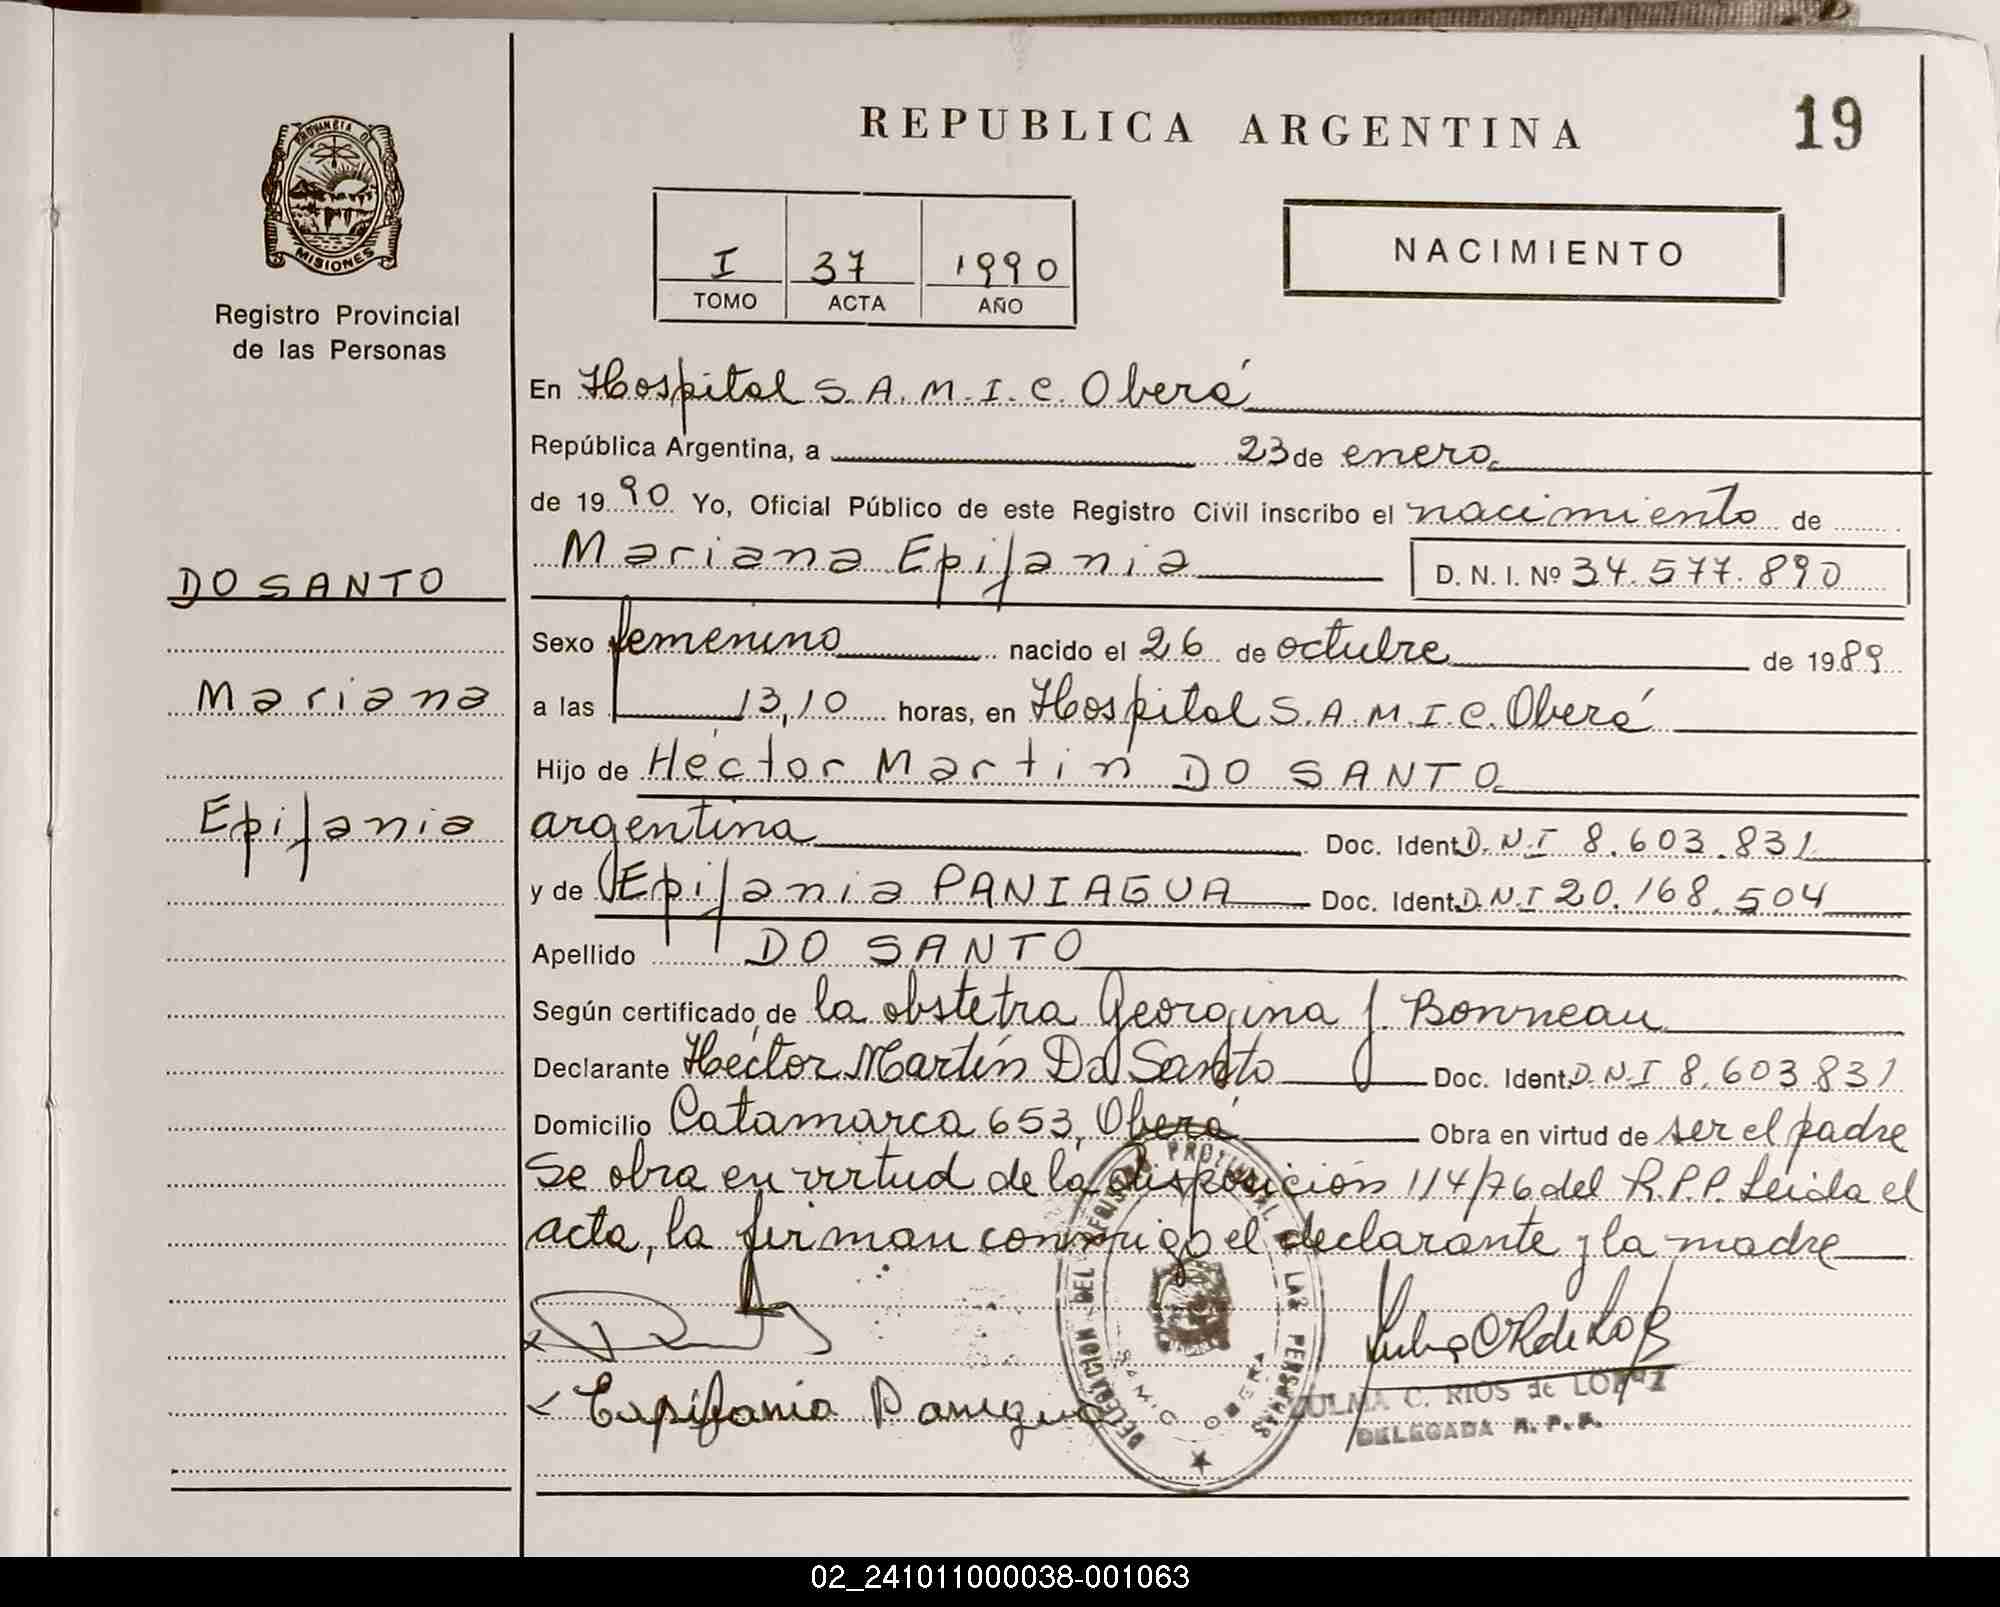 REPUBLICA ARGENTINA
19
PROVINCIA DE
MISIONES
Registro Provincial
de las Personas
I 37 1990
TOMO ACTA AÑO
NACIMIENTO
En Hospital S.A.M.I.C. Oberá
República Argentina, a 23 de enero
de 1990 Yo, Oficial Público de este Registro Civil inscribo el nacimiento de
Mariana Epifania D. N. I. Nº 34.577.890
DO SANTO
Mariana
Epifania
Sexo femenino nacido el 26 de octubre de 1989
a las 13,10 horas, en Hospital S.A.M.I.C. Oberá
Hijo de Héctor Martín DO SANTO
argentina Doc. Ident. D.N.I 8.603.831
y de Epifania PANIAGUA Doc. Ident. D.N.I 20.168.504
Apellido DO SANTO
Según certificado de la obstetra Georgina J. Bonneau
Declarante Héctor Martín Do Santo Doc. Ident. D.N.I 8.603.831
Domicilio Catamarca 653, Oberá Obra en virtud de ser el padre
Se obra en virtud de la disposición 114/76 del R.P.P. Leida el
acta, la firman conmigo el declarante y la madre
Epifania Paniagua
DELEGACION DEL REGISTRO PROVINCIAL DE LAS PERSONAS
OBERA
ZULMA C. RIOS de LOPEZ
DELEGADA R. P. P.
02_241011000038-001063